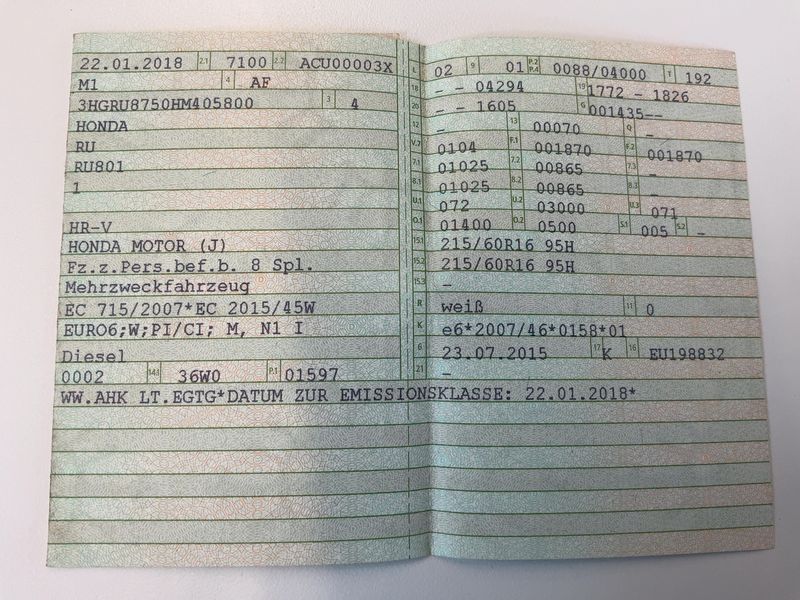 22.01.2018 2.1 7100 2.2 ACU00003X
M1 4 AF
3HGRU8750HM405800 3 4
HONDA
RU
RU801
1
HR-V
HONDA MOTOR (J)
Fz.z.Pers.bef.b. 8 Spl.
Mehrzweckfahrzeug
EC 715/2007*EC 2015/45W
EURO6;W;PI/CI; M, N1 I
Diesel
0002 14.1 36W0 P.1 01597
WW.AHK LT.EGTG*DATUM ZUR EMISSIONSKLASSE: 22.01.2018*
L 02 9 01 P.2 P.4 0088/04000 T 192
18 - - 04294 19 1772 - 1826
20 - - 1605 G 001435--
12 - 13 00070 Q -
V.7 0104 F.1 001870 F.2 001870
7.1 01025 7.2 00865 7.3 -
8.1 01025 8.2 00865 8.3 -
U.1 072 U.2 03000 U.3 071
O.1 01400 O.2 0500 S.1 005 S.2 -
15.1 215/60R16 95H
15.2 215/60R16 95H
15.3 -
R weiß 11 0
K e6*2007/46*0158*01
6 23.07.2015 17 K 16 EU198832
21 -